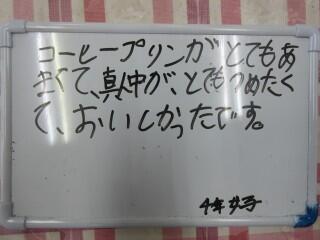 コーヒープリンが、とてもあ
まくて、真ん中が、とてもつめたく
て、おいしかったです。
4年 女子